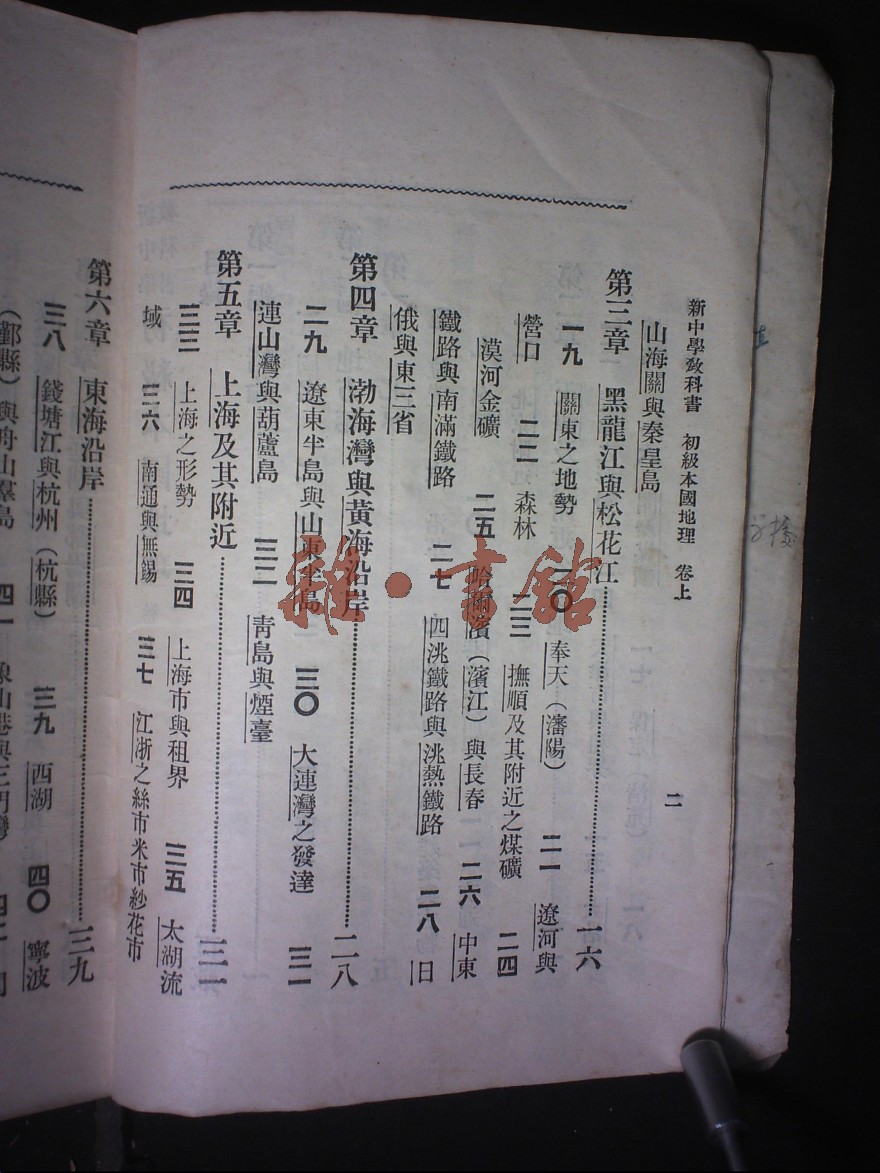 新中學教科書　初級本國地理　卷上
二
山海關與秦皇島
第三章　黑龍江與松花江……一六
一九　關東之地勢　二〇　奉天（瀋陽）　二一　遼河與
營口　二二　森林　二三　撫順及其附近之煤礦　二四
漠河金礦　二五　哈爾濱（濱江）與長春　二六　中東
鐵路與南滿鐵路　二七　四洮鐵路與洮熱鐵路　二八　日
俄與東三省
第四章　渤海灣與黃海沿岸……二八
二九　遼東半島與山東半島　三〇　大連灣之發達　三一
連山灣與葫蘆島　三二　青島與煙臺
第五章　上海及其附近……三一
三三　上海之形勢　三四　上海市與租界　三五　太湖流
域　三六　南通與無錫　三七　江浙之絲市米市紗花市
第六章　東海沿岸……三九
三八　錢塘江與杭州（杭縣）　三九　西湖　四〇　寧波
（鄞縣）與舟山羣島　四一　象山港與三門灣
雜·書館